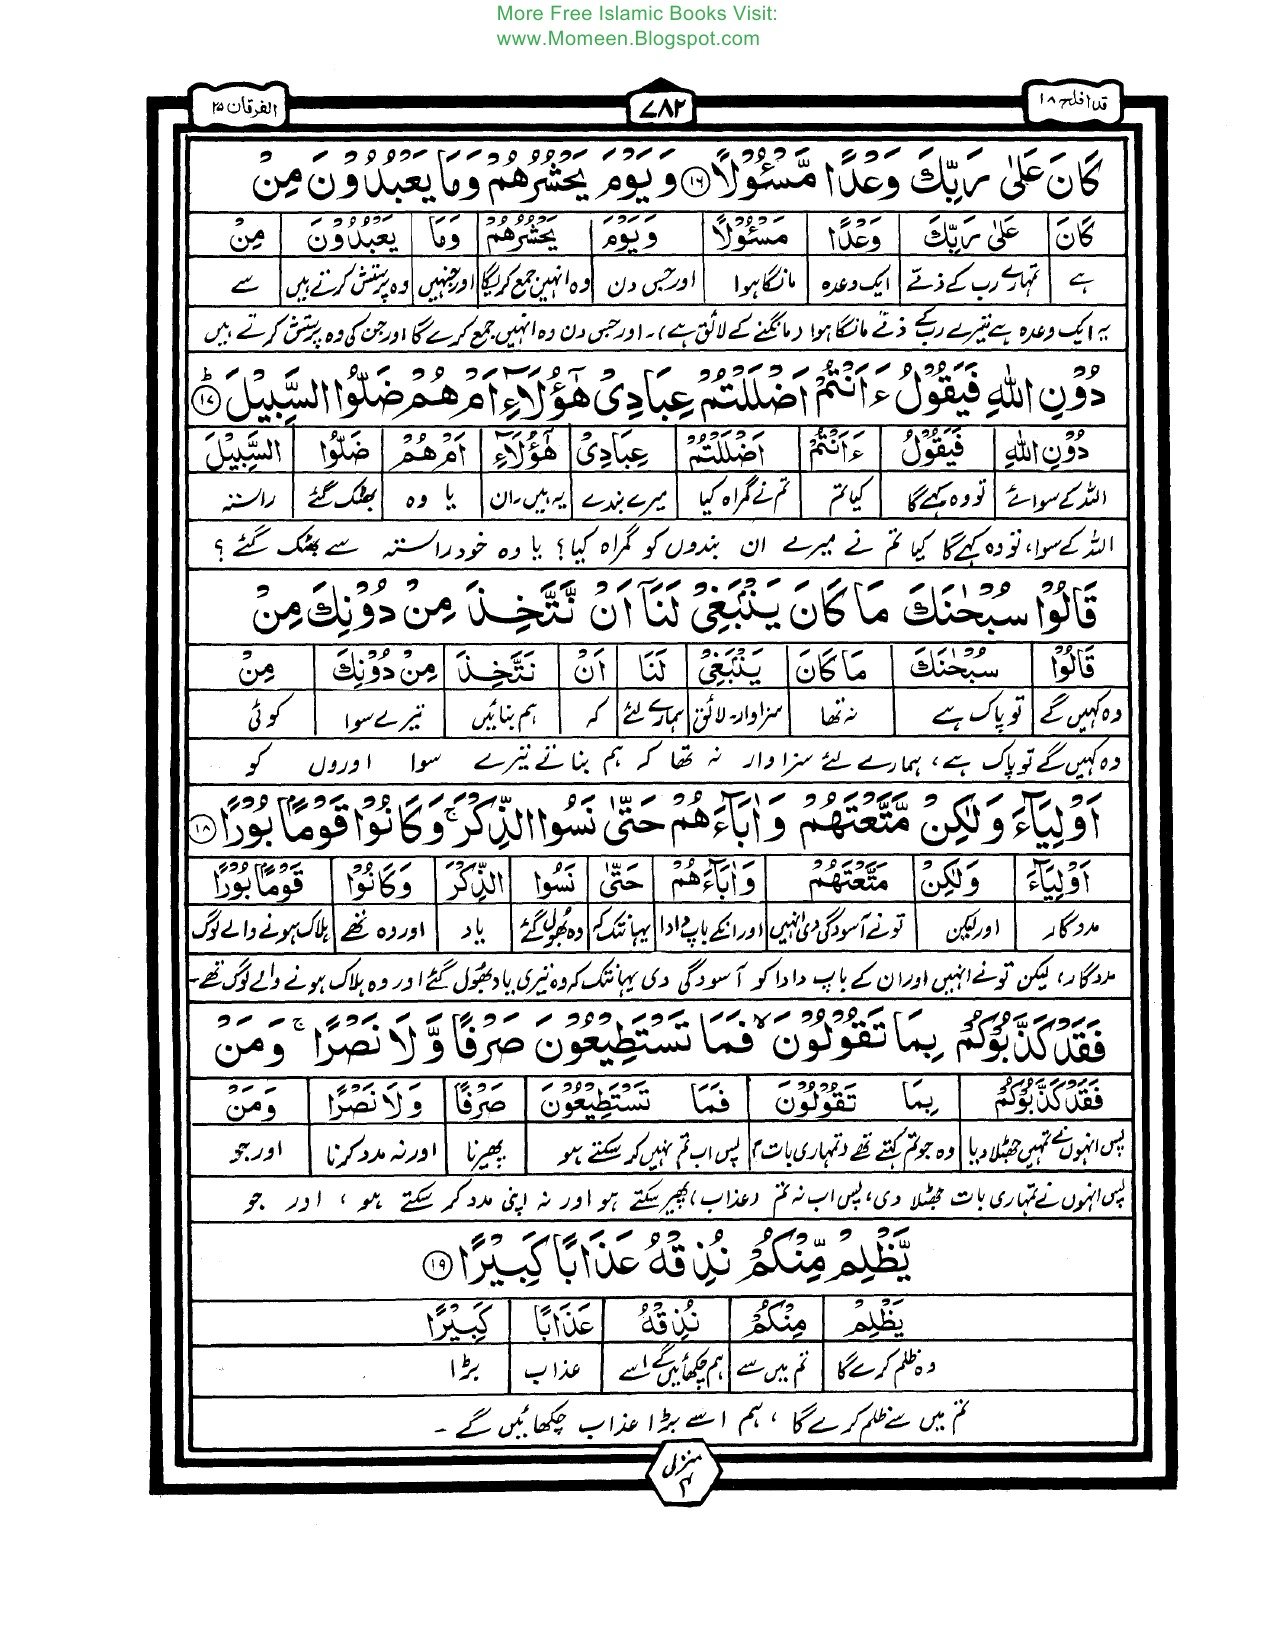 More Free Islamic Books Visit:
www.Momeen.Blogspot.com
قد افلح ١٨
٧٨٢
الفرقان ٢٥
كَانَ عَلٰى رَبِّكَ وَعْدًا مَّسْـُٔوْلًا ۝١٦ وَيَوْمَ يَحْشُرُهُمْ وَمَا يَعْبُدُوْنَ مِنْ
كَانَ عَلٰى رَبِّكَ وَعْدًا مَّسْئُوْلًا وَيَوْمَ يَحْشُرُهُمْ وَمَا يَعْبُدُوْنَ مِنْ
ہے تمہارے رب کے ذمّے ایک وعدہ مانگا ہوا اور جس دن وہ انہیں جمع کریگا اور جنہیں وہ پرستش کرتے ہیں سے
یہ ایک وعدہ ہے تیرے رب کے ذمّے مانگا ہوا (مانگنے کے لائق ہے)۔ اور جس دن وہ انہیں جمع کرے گا اور جن کی وہ پرستش کرتے ہیں
دُوْنِ اللّٰهِ فَيَقُوْلُ ءَاَنْتُمْ اَضْلَلْتُمْ عِبَادِىْ هٰٓؤُلَآءِ اَمْ هُمْ ضَلُّوا السَّبِيْلَ ؕ ۝١٧
دُوْنِ اللّٰهِ فَيَقُوْلُ ءَاَنْتُمْ اَضْلَلْتُمْ عِبَادِىْ هٰٓؤُلَآءِ اَمْ هُمْ ضَلُّوا السَّبِيْلَ
اللہ کے سوائے تو وہ کہے گا کیا تم تم نے گمراہ کیا میرے بندے یہ ہیں۔ان یا وہ بھٹک گئے راستہ
اللہ کے سوا، تو وہ کہے گا کیا تم نے میرے ان بندوں کو گمراہ کیا؟ یا وہ خود راستہ سے بھٹک گئے؟
قَالُوْا سُبْحٰنَكَ مَا كَانَ يَنْۢبَغِىْ لَنَاۤ اَنْ نَّتَّخِذَ مِنْ دُوْنِكَ مِنْ
قَالُوْا سُبْحٰنَكَ مَا كَانَ يَنْۢبَغِىْ لَنَا اَنْ نَتَّخِذَ مِنْ دُوْنِكَ مِنْ
وہ کہیں گے تو پاک ہے نہ تھا سزاوار۔ لائق ہمارے لئے کہ ہم بنائیں تیرے سوا کوئی
وہ کہیں گے تو پاک ہے، ہمارے لئے سزاوار نہ تھا کہ ہم بناتے تیرے سوا اوروں کو
اَوْلِيَآءَ وَلٰكِنْ مَّتَّعْتَهُمْ وَاٰبَآءَهُمْ حَتّٰى نَسُوا الذِّكْرَ ۚ وَكَانُوْا قَوْمًا بُوْرًا ۝١٨
اَوْلِيَآءَ وَلٰكِنْ مَتَّعْتَهُمْ وَاٰبَآءَهُمْ حَتّٰى نَسُوا الذِّكْرَ وَكَانُوْا قَوْمًا بُوْرًا
مددگار اور لیکن تو نے آسودگی دی انہیں اور انکے باپ دادا یہانتک کہ وہ بھول گئے یاد اور وہ تھے ہلاک ہونے والے لوگ
مددگار، لیکن تو نے انہیں اور ان کے باپ دادا کو آسودگی دی یہانتک کہ وہ تیری یاد بھول گئے اور وہ ہلاک ہونے والے لوگ تھے۔
فَقَدْ كَذَّبُوْكُمْ بِمَا تَقُوْلُوْنَ ۙ فَمَا تَسْتَطِيْعُوْنَ صَرْفًا وَّلَا نَصْرًا ۚ وَمَنْ
فَقَدْ كَذَّبُوْكُمْ بِمَا تَقُوْلُوْنَ فَمَا تَسْتَطِيْعُوْنَ صَرْفًا وَلَا نَصْرًا وَمَنْ
پس انہوں نے تمہیں جھٹلا دیا وہ جو تم کہتے تھے (تمہاری بات) پس اب تم نہیں کر سکتے ہو پھیرنا اور نہ مدد کرنا اور جو
پس انہوں نے تمہاری بات جھٹلا دی، پس اب نہ تم (عذاب) پھیر سکتے ہو اور نہ اپنی مدد کر سکتے ہو، اور جو
يَّظْلِمْ مِّنْكُمْ نُذِقْهُ عَذَابًا كَبِيْرًا ۝١٩
يَظْلِمْ مِنْكُمْ نُذِقْهُ عَذَابًا كَبِيْرًا
وہ ظلم کرے گا تم میں سے ہم چکھائیں گے اسے عذاب بڑا
تم میں سے ظلم کرے گا، ہم اسے بڑا عذاب چکھائیں گے۔
منزل
٤